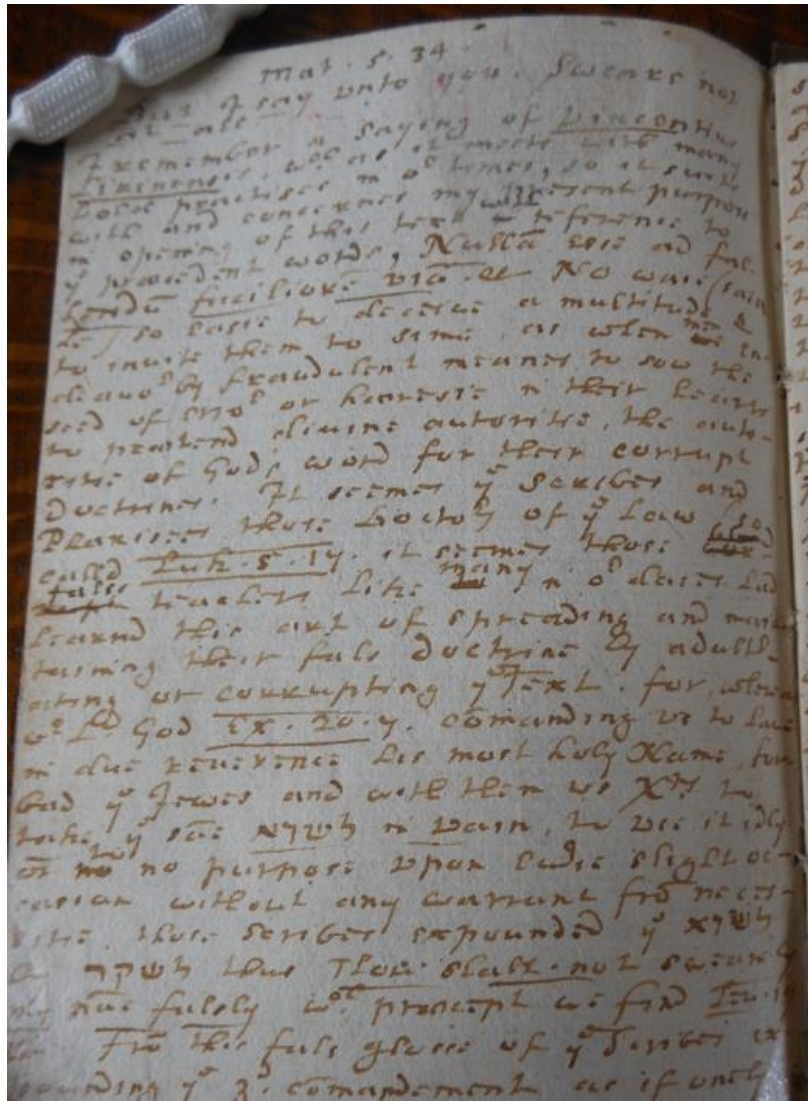 Mat. 5. 34.
But I say unto you. Sweare not
at all
I remember a saying of Vincentius
Lirinensis, wch as it meets with many
bold practises in or times, so it suits
with and concernes my present purpose
in opening of this text wth reference to
ye precedent words, Nullā esse ad fal-
lendū faciliorē viā &c No waie (saith
he) so easie to deceive a multitude &
to invite them to sinne as when men en-
deavor by fraudulent meanes to sow the
seed of error or haeresie in their hearts
to praetend divine autoritie, the auto-
ritie of Gods word for their corrupt
Doctrines. It seemes ye Scribes and
Pharisees those Doctors of ye Law (so
called Luk. 5. 17. it seemes those
fals teachers like many in or daies had
learnd this art of spreading and main-
taining their fals doctrine by adulter-
ating or corrupting ye Text. for, whereas
ye Ld God Ex. 20. 7. comanding us to have
in due reverence his most holy Name, for-
bad ye Jewes and with them us Xns to
take ye sāe לשוא in vain, to use it idly
or to no purpose upon everie slight oc-
casion without any warrant frō neces-
sitie. those Scribes expounded ye לשוא
לשקר thus Thou shalt not sweare by
my nāe falsely wch praecept we find Lev. 19
Frō this fals glosse of ye Scribes ex-
pounding ye 3d comandement as if onely